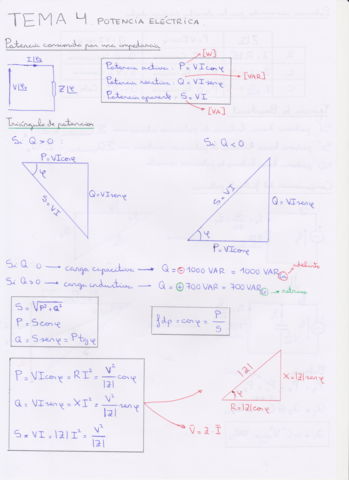 TEMA 4 POTENCIA ELÉCTRICA
Potencia consumida por una impedancia
[W]
Potencia activa: P = VI cosφ
Potencia reactiva: Q = VI senφ
[VAR]
Potencia aparente: S = VI
[VA]
Triángulo de potencias
Si Q > 0:
Si Q < 0:
P = VI cosφ
φ
S = VI
Q = VI senφ
S = VI
Q = VI senφ
φ
P = VI cosφ
Si Q 0 → carga capacitiva → Q = ⊖ 1000 VAR = 1000 VAR
Si Q > 0 → carga inductiva → Q = ⊕ 700 VAR = 700 VAR
S = √P² + Q²
P = S cosφ
Q = S senφ = P tgφ
fdp = cosφ = P/S
P = VI cosφ = RI² = V²/|Z| cosφ
Q = VI senφ = XI² = V²/|Z| senφ
S = VI = |Z| I² = V²/|Z|
|Z|
X = |Z| senφ
φ
R = |Z| cosφ
V̄ = Z̄ · Ī